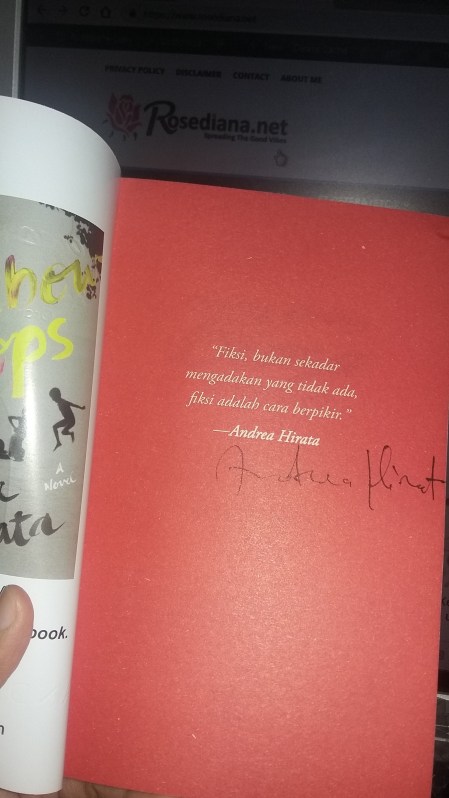 PRIVACY POLICY DISCLAIMER CONTACT ABOUT ME
Rosediana.net
Spreading The Good Vibes
A
Novel
ata
book.
"Fiksi, bukan sekadar
mengadakan yang tidak ada,
fiksi adalah cara berpikir."
—Andrea Hirata
Andrea Hirata